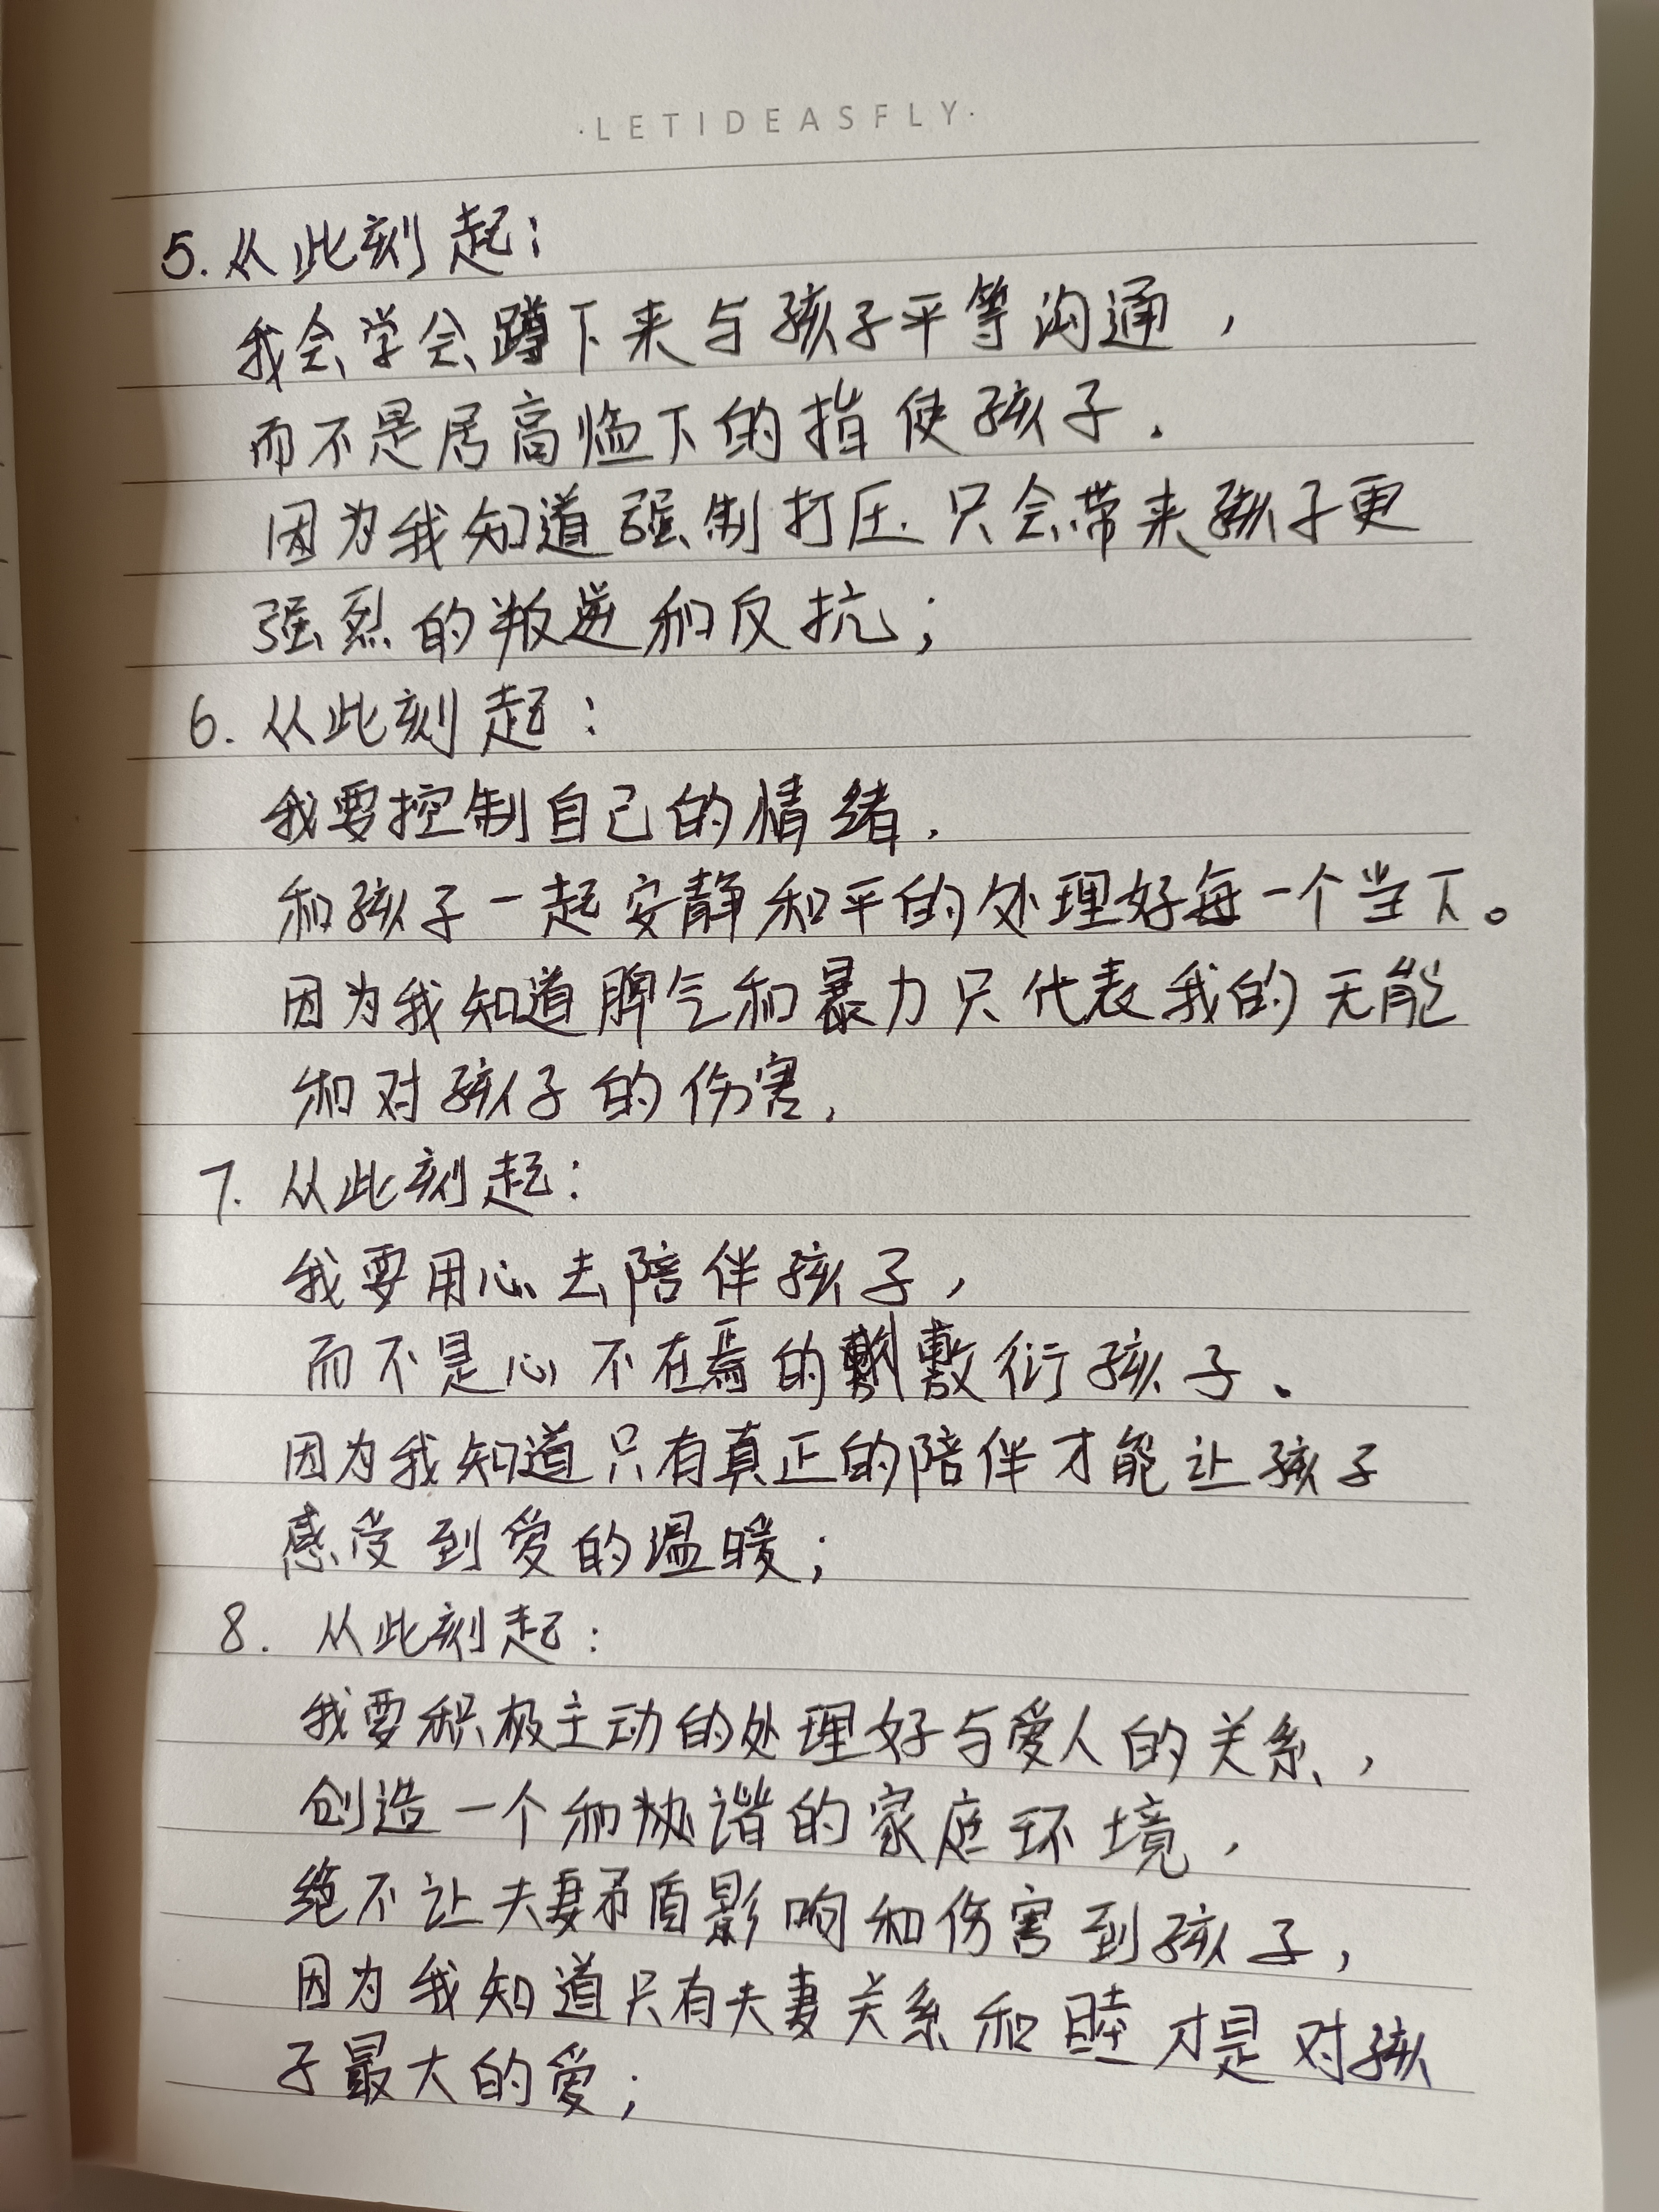 ·LETIDEASFLY·
5. 从此刻起：
我会学会蹲下来与孩子平等沟通，
而不是居高临下的指使孩子.
因为我知道强制打压只会带来孩子更
强烈的叛逆和反抗；
6. 从此刻起：
我要控制自己的情绪.
和孩子一起安静和平的处理好每一个当下。
因为我知道脾气和暴力只代表我的无能
和对孩子的伤害.
7. 从此刻起：
我要用心去陪伴孩子，
而不是心不在焉的敷衍孩子.
因为我知道只有真正的陪伴才能让孩子
感受到爱的温暖；
8. 从此刻起：
我要积极主动的处理好与爱人的关系，
创造一个和协谐的家庭环境，
绝不让夫妻矛盾影响和伤害到孩子，
因为我知道只有夫妻关系和睦才是对孩
子最大的爱；